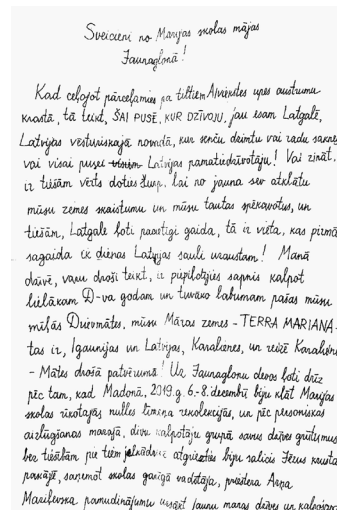 Sveicieni no Marijas skolas mājas
Jaunaglonā!
Kad ceļojot pārceļamies pa tiltiem Aiviekstes upes austrumu
krastā, tā teikt, ŠAI PUSĒ, KUR DZĪVOJU, jau esam Latgalē,
Latvijas vēsturiskajā novadā, kur senču dzimtu vai radu saknes
vai visai pusei Latvijas pamatiedzīvotāju! Vai zināt,
ir tiešām vērts doties šurp, lai no jauna sev atklātu
mūsu zemes skaistumu un mūsu tautas spēkavotus, un
tiešām, Latgale ļoti pacietīgi gaida, tā ir vieta, kas pirmā
sagaida ik dienas Latvijas sauli uzaustam! Manā
dzīvē, varu droši teikt, ir piepildījies sapnis kalpot
lielākam D-va godam un tuvāko labumam pašas mūsu
mīļās Dievmātes, mūsu Māras zemes - TERRA MARIANA -
tas ir, Igaunijas un Latvijas, Karalienes, un reizē Karalistes
- Mātes drošā patvērumā! Uz Jaunaglonu devos ļoti drīz
pēc tam, kad Madonā, 2019.g. 6.-8. decembrī biju klāt Marijas
skolas rīkotajās nulles līmeņa rekolekcijās, un pēc personiskas
aizlūgšanas mazajā, divu kalpotāju grupā savus dzīves grūtumus
bez tiesībām pie tiem jebkādreiz atgriezties biju salicis Jēzus krusta
pakājē, saņemot skolas garīgā vadītāja, priestera
pamudinājumu uzsākt jaunu manas dzīves un kalpošanas